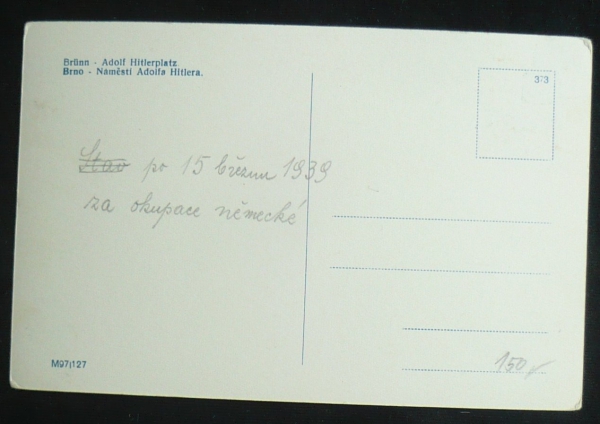 Brünn - Adolf Hitlerplatz.
Brno - Náměstí Adolfa Hitlera.
373
Stav po 15 březnu 1939
za okupace německé
M97|127
150